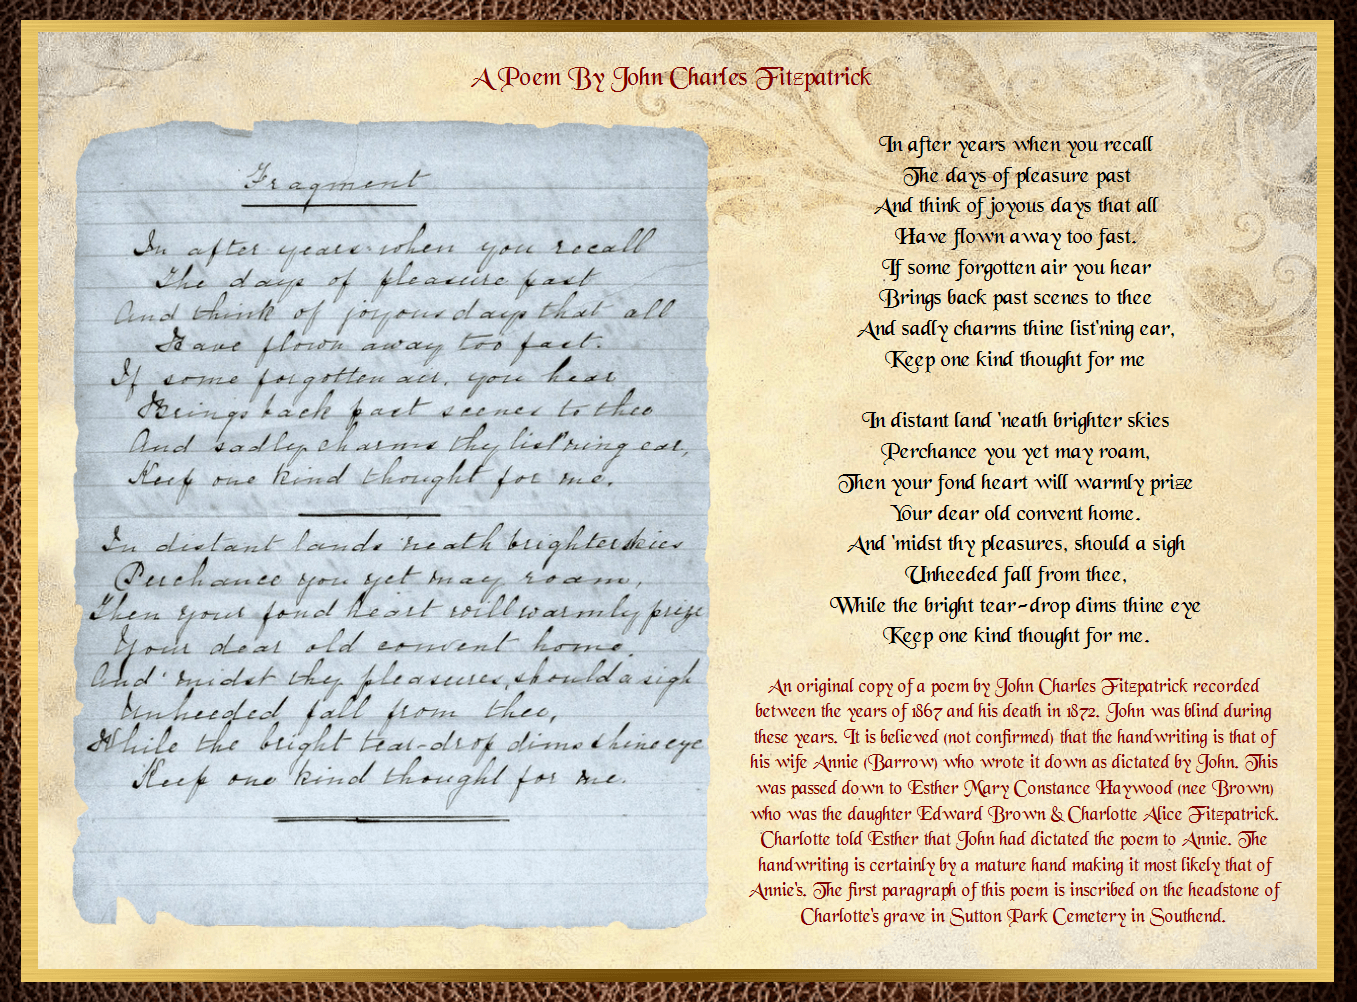 A Poem By John Charles Fitzpatrick
Fragment
In after years when you recall
The days of pleasure past
And think of joyous days that all
Have flown away too fast.
If some forgotten air, you hear
Brings back past scenes to thee
And sadly charms thy list'ning ear,
Keep one kind thought for me.
In distant lands 'neath brighter skies
Perchance you yet may roam,
Then your fond heart will warmly prize
Your dear old convent home.
And 'midst thy pleasures, should a sigh
Unheeded fall from thee,
While the bright tear-drop dims thine eye
Keep one kind thought for me.
In after years when you recall
The days of pleasure past
And think of joyous days that all
Have flown away too fast.
If some forgotten air you hear
Brings back past scenes to thee
And sadly charms thine list'ning ear,
Keep one kind thought for me
In distant land 'neath brighter skies
Perchance you yet may roam,
Then your fond heart will warmly prize
Your dear old convent home.
And 'midst thy pleasures, should a sigh
Unheeded fall from thee,
While the bright tear-drop dims thine eye
Keep one kind thought for me.
An original copy of a poem by John Charles Fitzpatrick recorded
between the years of 1867 and his death in 1872. John was blind during
these years. It is believed (not confirmed) that the handwriting is that of
his wife Annie (Barrow) who wrote it down as dictated by John. This
was passed down to Esther Mary Constance Haywood (nee Brown)
who was the daughter Edward Brown & Charlotte Alice Fitzpatrick.
Charlotte told Esther that John had dictated the poem to Annie. The
handwriting is certainly by a mature hand making it most likely that of
Annie's. The first paragraph of this poem is inscribed on the headstone of
Charlotte's grave in Sutton Park Cemetery in Southend.